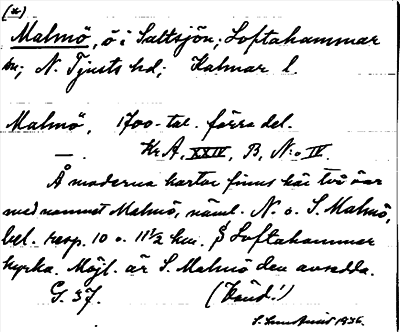 (*)
Malmö, ö i Saltsjön; Loftahammar
sn; N. Tjusts hd; Kalmar l.
Malmö, 1700-tal. förra del.
— . Kr A, XXIV, B, N:o IV
Å moderna kartor finns här två öar
med namnet Malmö, näml. N. o. S. Malmö,
bel. resp. 10 o. 11½ km. S Loftahammar
kyrka. Möjl. är S. Malmö den avsedda.
G. 37. (Känd!)
1936.